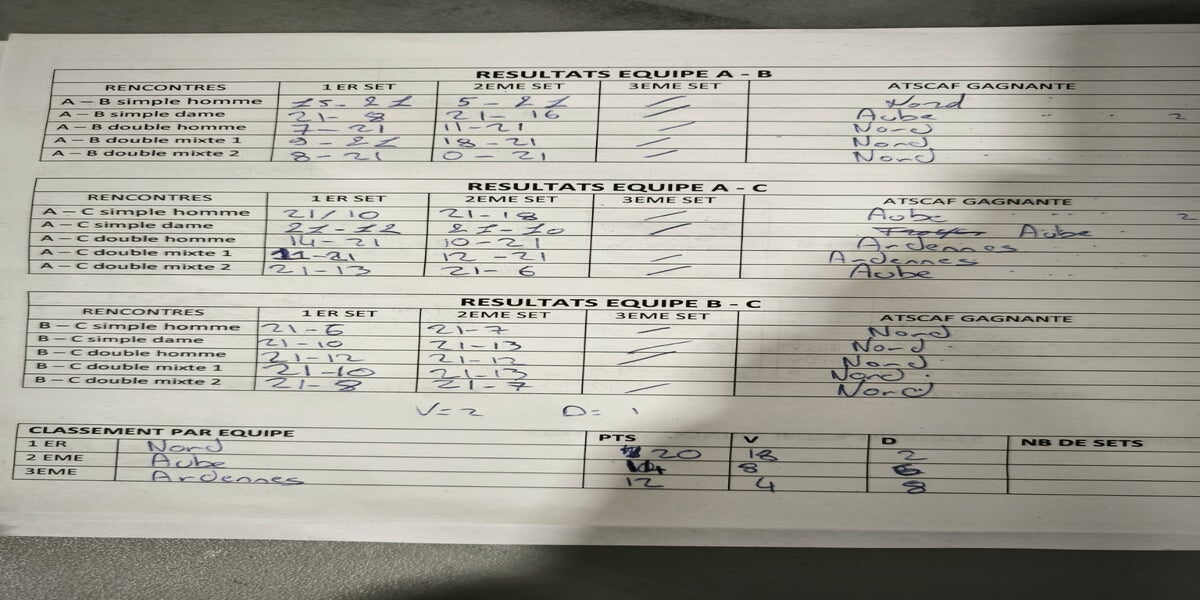 RESULTATS EQUIPE A - B
RENCONTRES 1 ER SET 2EME SET 3EME SET ATSCAF GAGNANTE
A – B simple homme 15 - 21 5 - 21 // Nord
A – B simple dame 21 - 8 21 - 16 // Aube 2
A – B double homme 7 - 21 11 - 21 // Nord
A – B double mixte 1 9 - 21 18 - 21 // Nord
A – B double mixte 2 8 - 21 0 - 21 // Nord
RESULTATS EQUIPE A - C
RENCONTRES 1 ER SET 2EME SET 3EME SET ATSCAF GAGNANTE
A – C simple homme 21/10 21-18 // Aube 2
A – C simple dame 21-12 21-10 // Aube
A – C double homme 14-21 10-21 Ardennes
A – C double mixte 1 11-21 12-21 // Ardennes
A – C double mixte 2 21-13 21-6 // Aube
RESULTATS EQUIPE B - C
RENCONTRES 1 ER SET 2EME SET 3EME SET ATSCAF GAGNANTE
B – C simple homme 21-6 21-7 // Nord
B – C simple dame 21-10 21-13 // Nord
B – C double homme 21-12 21-12 // Nord
B – C double mixte 1 21-10 21-13 Nord
B – C double mixte 2 21-8 21-7 // Nord
V=2 D= 1
CLASSEMENT PAR EQUIPE PTS V D NB DE SETS
1 ER Nord 20 18 2
2 EME Aube 8 6
3EME Ardennes 12 4 8